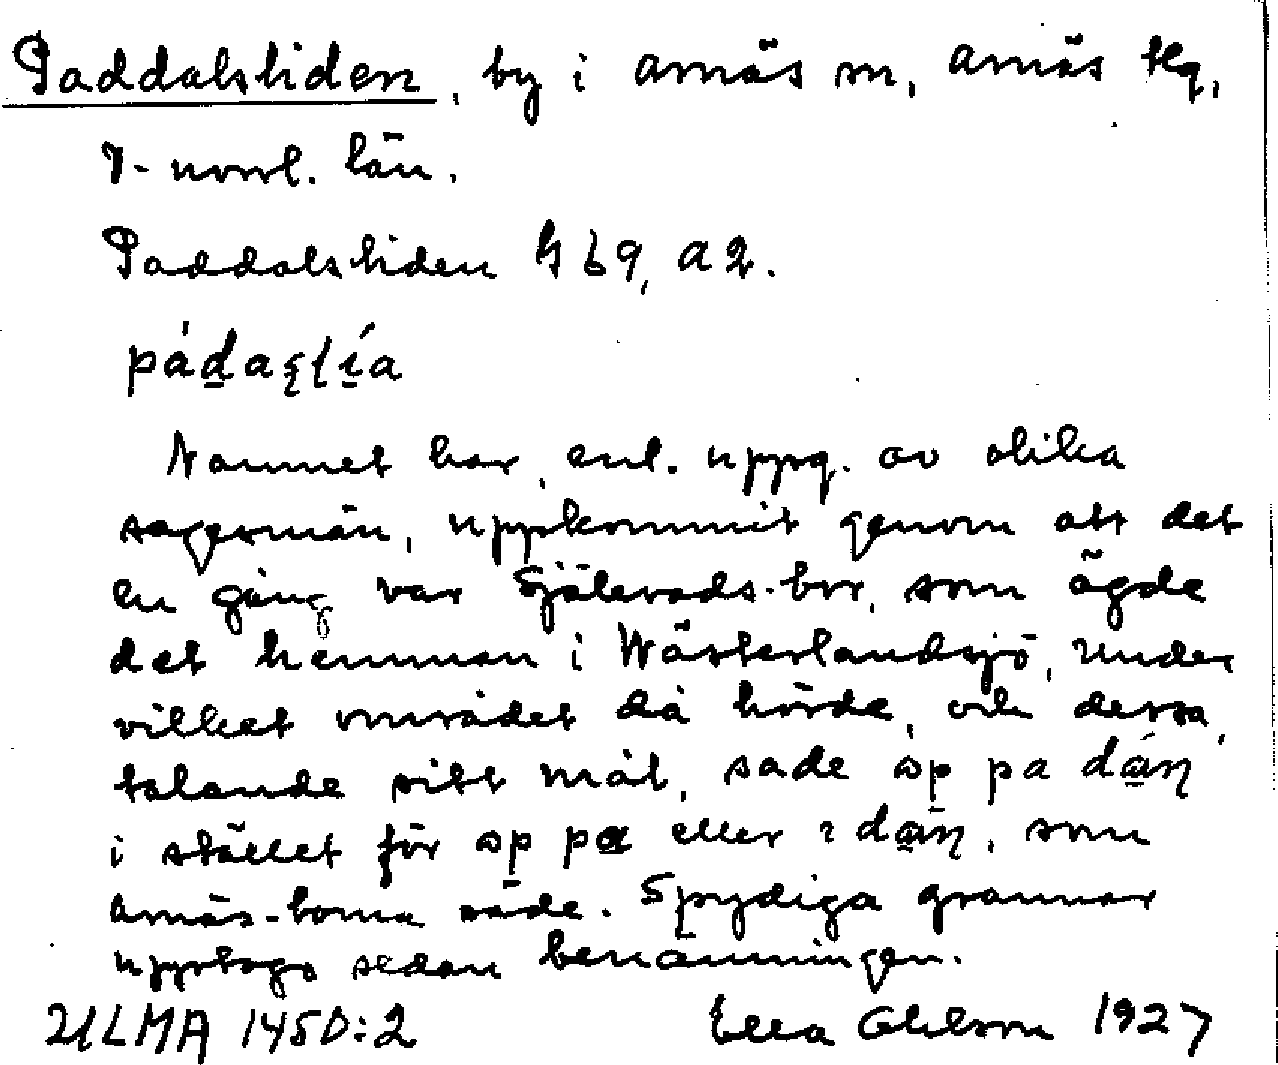 Paddalsliden, by i Arnäs sn, Arnäs tg,
V-norrl. län.
Paddalsliden h 69, a 2.
pádaʂlía
Namnet har, enl. uppg. av olika
sagesmän, uppkommit genom att det
en gång var Själevads-bor, som ägde
det hemman i Wästerlandsjö, under
vilket området då hörde, och dessa,
talande sitt mål, sade òp pa dáɳ
i stället för òp pa eller ı dāɳ, som
Arnäs-borna säde. Spydiga grannar
upptogo sedan benämningen.
ULMA 1450:2 Ella Ohlson 1927